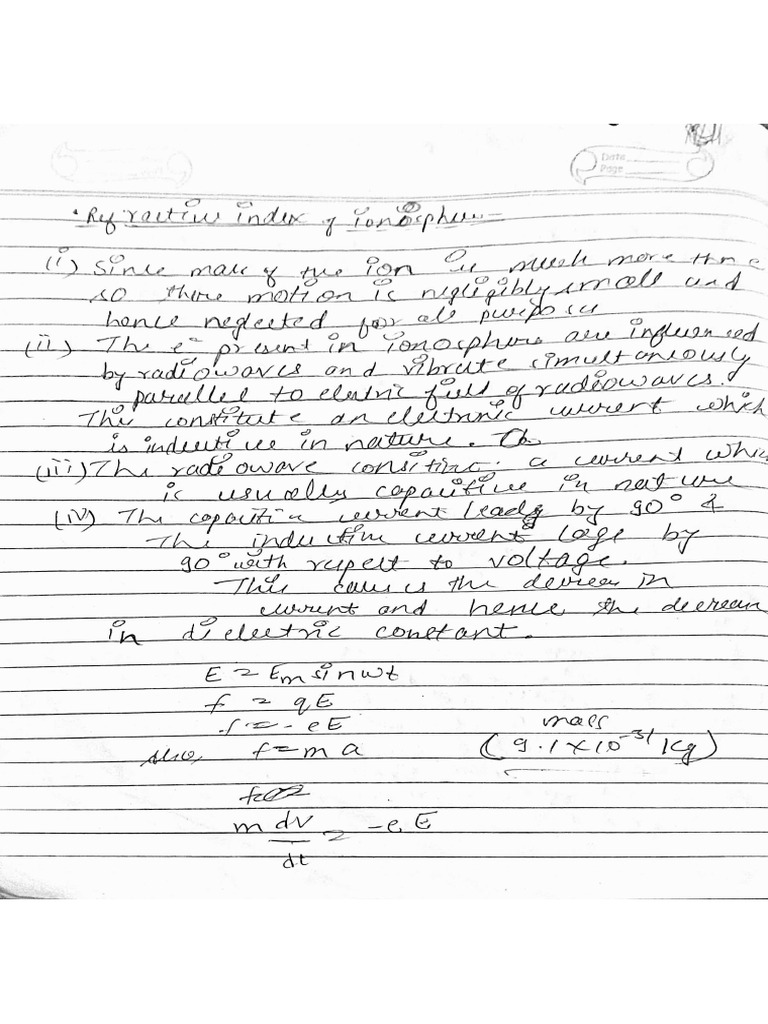 Date
Page
• Refractive index of ionosphere -
(i) Since mass of the ion is much more than e
so there motion is negligibly small and
hence neglected for all purposes
(ii) The e⁻ present in ionosphere are influenced
by radiowaves and vibrate simultaneously
parallel to electric field of radiowaves.
This constitute an electronic current which
is inductive in nature.
(iii) The radiowave a current which
is usually capacitive in nature
(iv) The capacitive current leads by 90° &
The inductive current lags by
90° with respect to voltage.
This causes the decrease in
current and hence the decrease
in dielectric constant.
E = Em sin wt
f = qE
f = - eE
mass
Also, f = m a (9.1 × 10⁻³¹ Kg)
m dv/dt = -e E